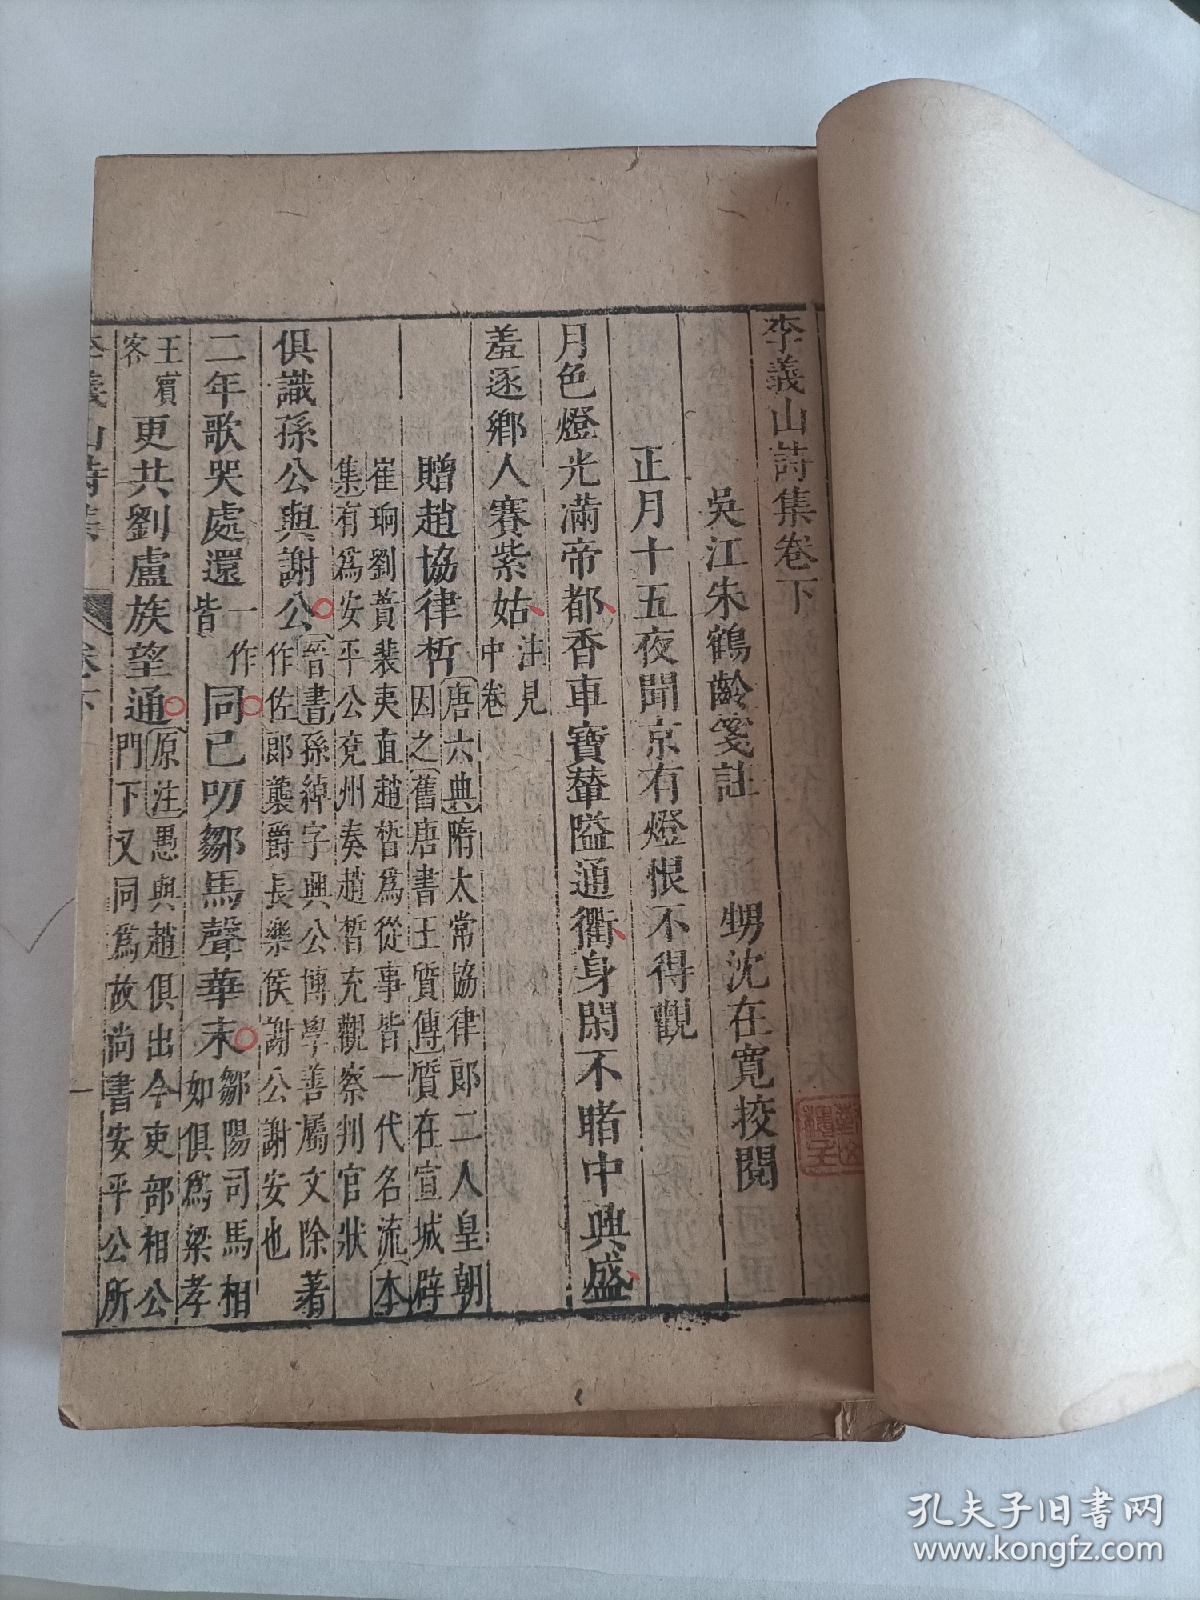 李義山詩集卷下
吳江朱鶴齡箋註　甥沈在寬挍閱
正月十五夜聞京有燈恨不得觀
月色燈光滿帝都香車寶輦隘通衢身閑不睹中興盛
羞逐鄉人賽紫姑注見中卷
贈趙協律晳唐六典隋太常協律郎二人皇朝
因之舊唐書王質傳質在宣城辟
崔珦劉蕡裴夷直趙晳爲從事皆一代名流本
集有爲安平公兗州奏趙晳充觀察判官狀
俱識孫公與謝公晉書孫綽字興公博學善屬文除著
作佐郎襲爵長樂侯謝公謝安也
二年歌哭處還一作皆同已叨鄒馬聲華末鄒陽司馬相
如俱爲梁孝
王賓客更共劉盧族望通原注愚與趙俱出今吏部相公
門下又同爲故尚書安平公所
李義山詩集
卷下
一
孔夫子旧书网
www.kongfz.com